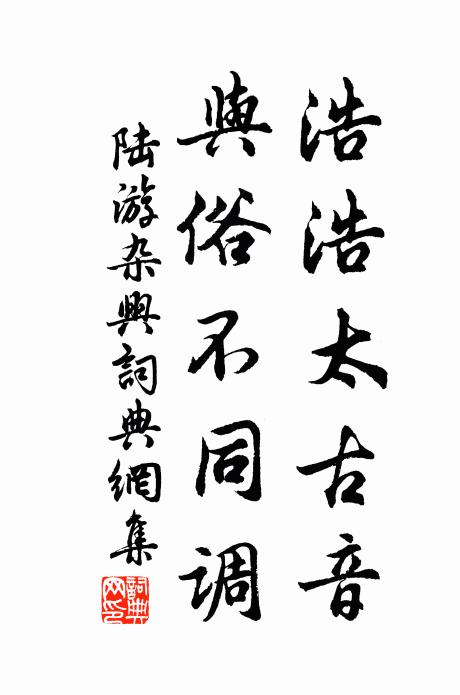 浩浩太古音
與俗不同调
陆游杂興詞典網集
詞典網印